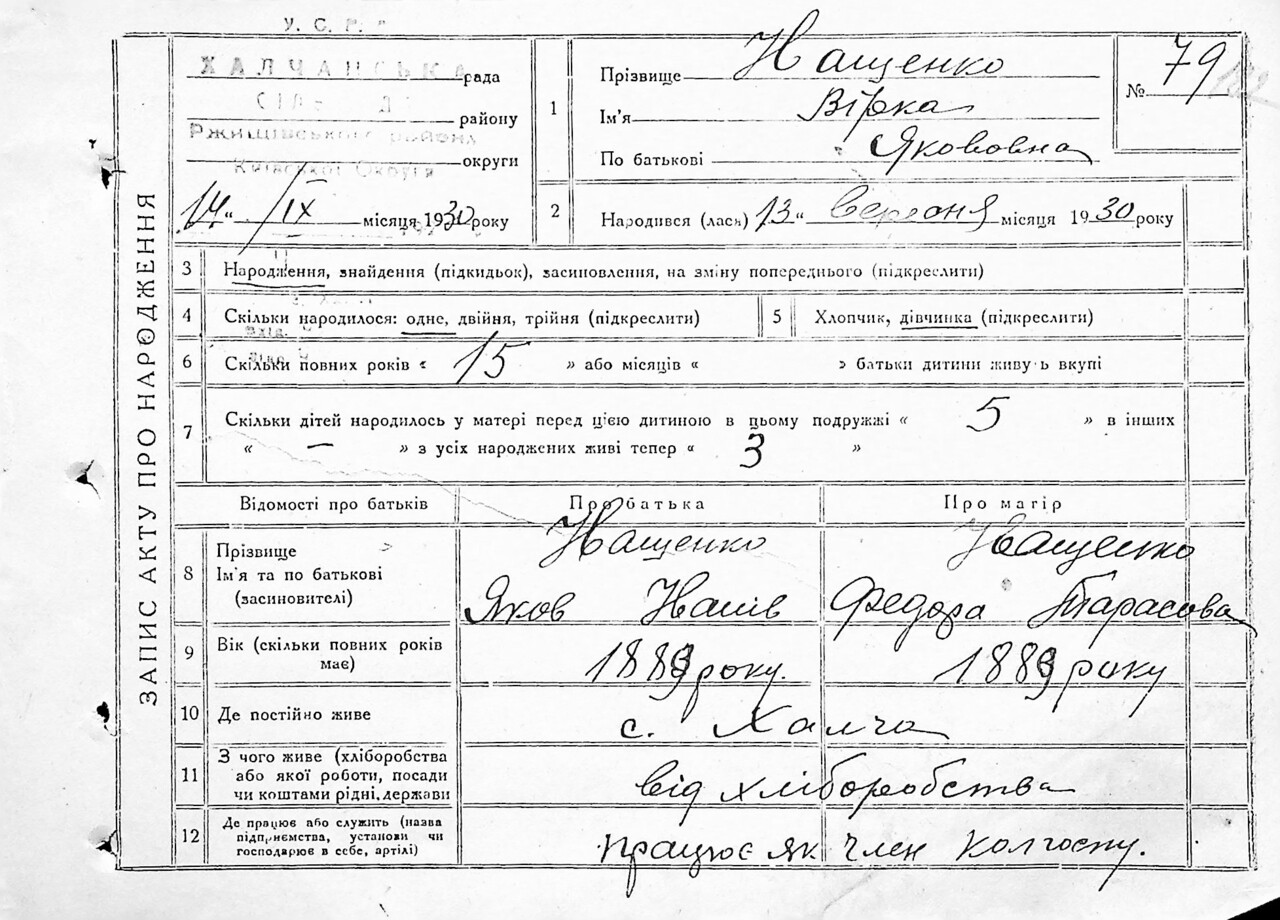 У. С. Р. Р.
ХАЛЧАНСЬКА рада
району
Ржищівського району
округи
Київської Округи
14 " ІХ місяця 1930 року
1
Прізвище Іващенко
Ім'я Вірка
По батькові Якововна
№ 79
2
Народився (лася) 13 " Вересня місяця 1930 року
ЗАПИС АКТУ ПРО НАРОДЖЕННЯ
3 Народження, знайдення (підкидьок), засиновлення, на зміну попереднього (підкреслити)
4 Скільки народилося: одне, двійня, трійня (підкреслити)
5 Хлопчик, дівчинка (підкреслити)
6 Скільки повних років « 15 » або місяців « » батьки дитини живуть вкупі
7 Скільки дітей народилось у матері перед цією дитиною в цьому подружжі « 5 » в інших
« — » з усіх народжених живі тепер « 3 »
Відомості про батьків Про батька Про матір
8 Прізвище
Ім'я та по батькові
(засиновителі)
Іващенко
Яков Іванів
Іващенко
Федора Тарасова
9 Вік (скільки повних років
має)
1889 року.
1889 року
10 Де постійно живе
с. Халча
11 З чого живе (хліборобства
або якої роботи, посади
чи коштами рідні, держави
від хліборобства
12 Де працює або служить (назва
підприємства, установи чи
господарює в себе, артілі)
працює як член колгоспу.